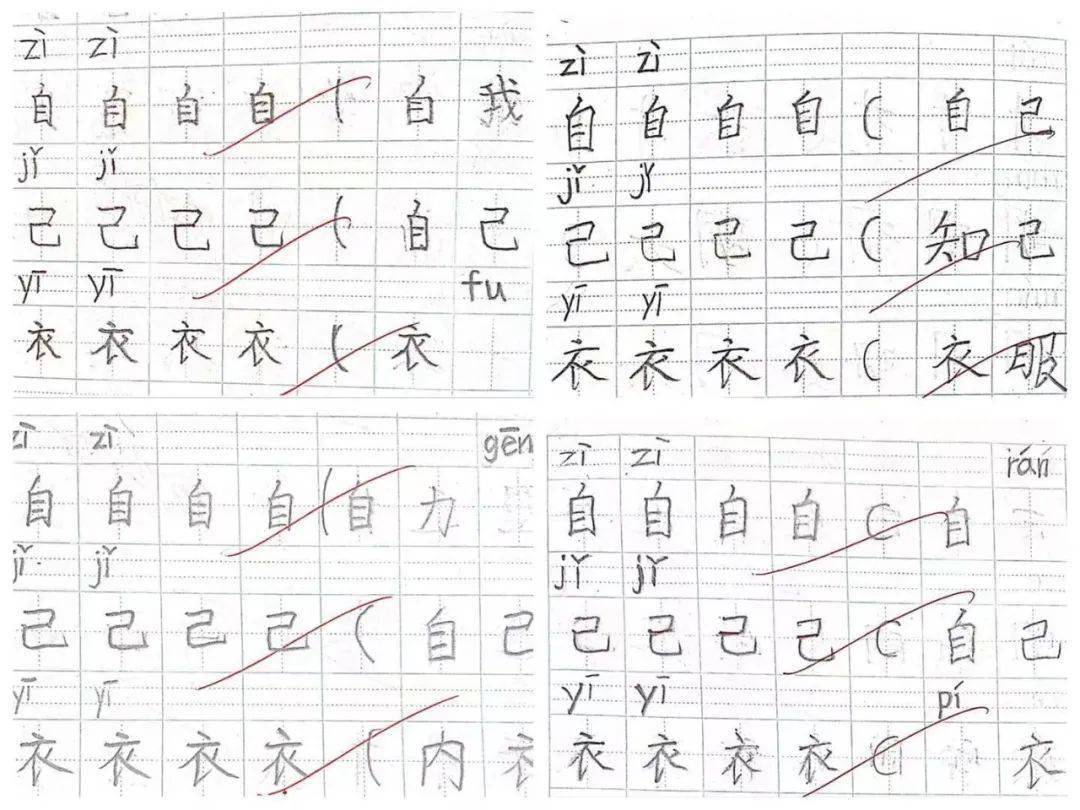 zì zì
自 自 自 自 ( 自 我
jǐ jǐ
己 己 己 己 ( 自 己
yī yī fu
衣 衣 衣 衣 ( 衣
zì zì
自 自 自 自 ( 自 己
jǐ jǐ
己 己 己 己 ( 知 己
yī yī
衣 衣 衣 衣 ( 衣 服
zì zì gēn
自 自 自 自 ( 自 力
jǐ jǐ
己 己 己 己 ( 自 己
yī yī
衣 衣 衣 衣 ( 内 衣
zì zì rán
自 自 自 自 ( 自
jǐ jǐ
己 己 己 己 ( 自 己
yī yī pí
衣 衣 衣 衣 ( 衣